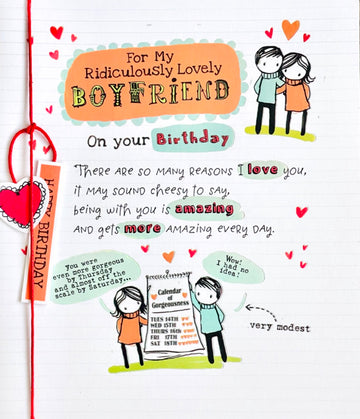 For My
Ridiculously Lovely
BOYFRIEND
On your Birthday
There are so many reasons I love you,
it may sound cheesy to say,
being with you is amazing
and gets more amazing every day.
HAPPY BIRTHDAY
You were
even more gorgeous
by Thursday
and almost off the
scale by Saturday...
Wow!
I had no
idea!
Calendar
of
Gorgeousness
TUES 14TH
WED 15TH
THURS 16TH
FRI 17TH
SAT 18TH
very modest